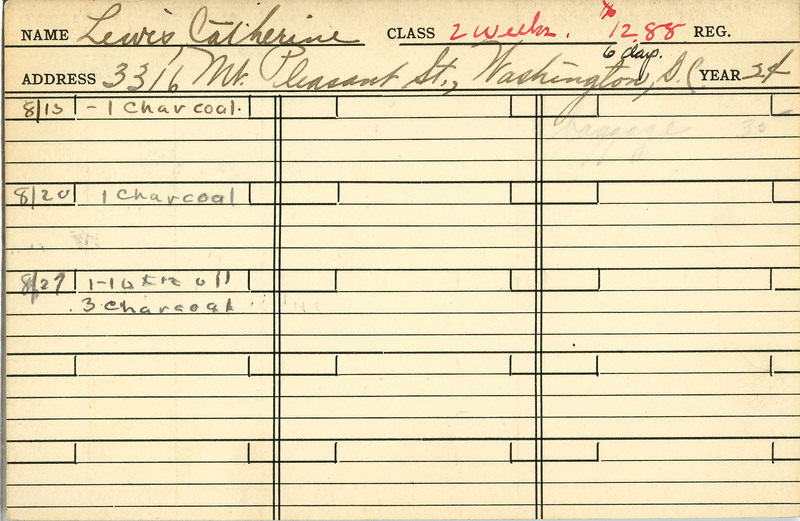 NAME Lewis, Catherine CLASS 2 Weeks. 1288 REG.
6 days.
ADDRESS 3316 Mt. Pleasant St., Washington, D.C. YEAR 24
8/13 - 1 Charcoal.
baggage 30
8/20 1 Charcoal
8/27 1-16 off
3 Charcoal